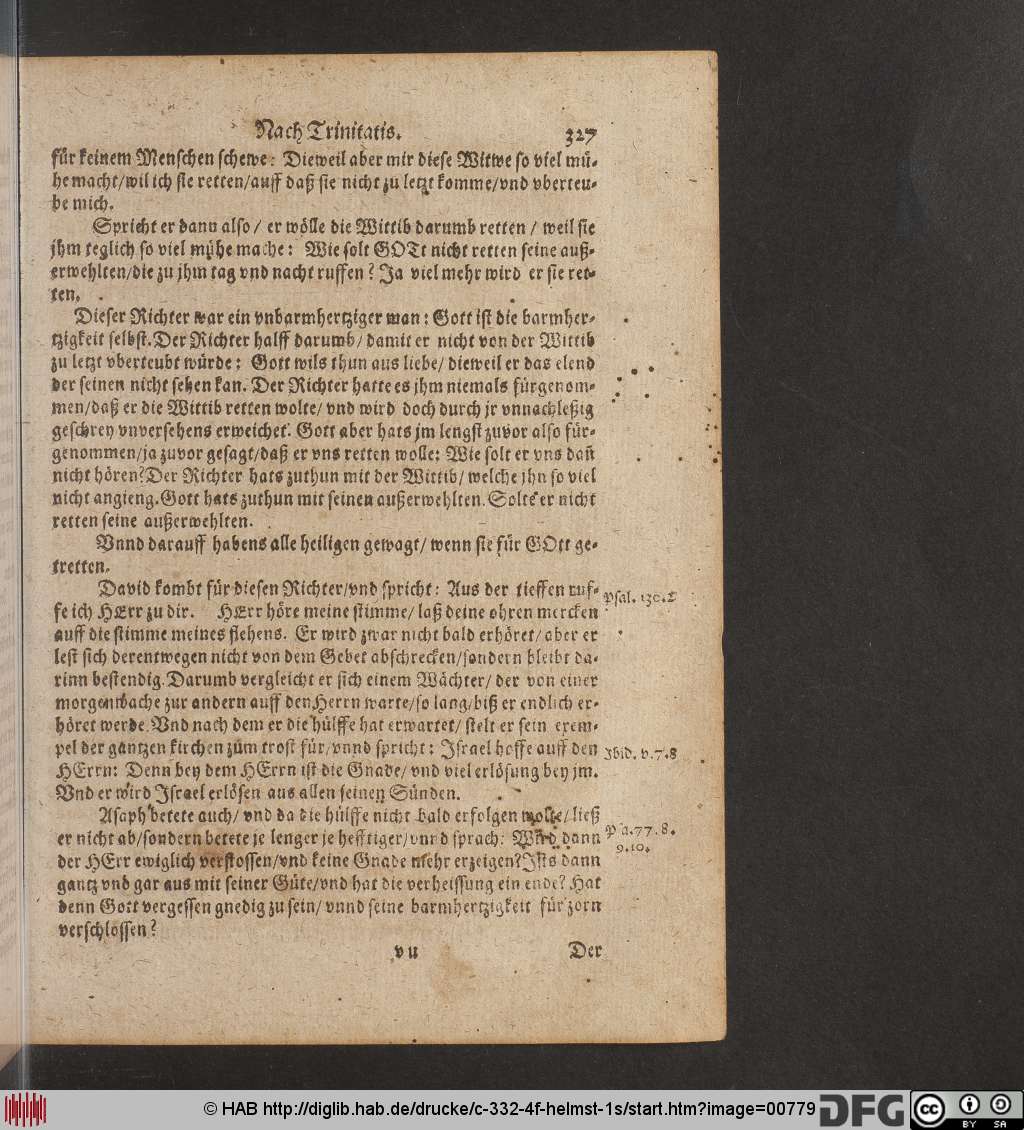 Nach Trinitatis. 327
für keinem Menschen schewe: Dieweil aber mir diese Witwe so viel mü-
he macht/wil ich sie retten/auff daß sie nicht zu letzt komme/vnd vberteu-
be mich.
Spricht er dann also/ er wölle die Wittib darumb retten / weil sie
jhm teglich so viel mühe mache: Wie solt GOTt nicht retten seine auß-
erwehlten/die zu jhm tag vnd nacht ruffen? Ja viel mehr wird er sie ret-
ten.
Dieser Richter war ein vnbarmhertziger man: Gott ist die barmher-
tzigkeit selbst. Der Richter halff darumb/ damit er nicht von der Wittib
zu letzt vberteubt würde: Gott wils thun aus liebe/ dieweil er das elend
der seinen nicht sehen kan. Der Richter hatte es jhm niemals fürgenom-
men/daß er die Wittib retten wolte/ vnd wird doch durch jr vnnachleßig
geschrey vnversehens erweichet. Gott aber hats jm lengst zuvor also für-
genommen/ja zuvor gesagt/daß er vns retten wolle: Wie solt er vns dañ
nicht hören? Der Richter hats zuthun mit der Wittib/ welche jhn so viel
nicht angieng. Gott hats zuthun mit seinen außerwehlten. Solte er nicht
retten seine außerwehlten.
Vnnd darauff habens alle heiligen gewagt/ wenn sie für GOtt ge-
tretten.
David kombt für diesen Richter/vnd spricht: Aus der tieffen ruf-
fe ich HErr zu dir. HErr höre meine stimme/ laß deine ohren mercken
auff die stimme meines flehens. Er wird zwar nicht bald erhöret/ aber er
lest sich derentwegen nicht von dem Gebet abschrecken/sondern bleibt da-
rinn bestendig. Darumb vergleicht er sich einem Wächter/ der von einer
morgenwache zur andern auff den Herrn warte/so lang/biß er endlich er-
höret werde. Vnd nach dem er die hülffe hat erwartet/ stelt er sein exem-
pel der gantzen kirchen zum trost für/vnnd spricht: Israel hoffe auff den
HErrn: Denn bey dem HErrn ist die Gnade/ vnd viel erlösung bey jm.
Vnd er wird Israel erlösen aus allen seinen Sünden.
Asaph betete auch/ vnd da die hülffe nicht bald erfolgen wolte/ ließ
er nicht ab/sondern betete je lenger je hefftiger/vnnd sprach: Wird dann
der HErr ewiglich verstossen/vnd keine Gnade mehr erzeigen? Ists dann
gantz vnd gar aus mit seiner Güte/vnd hat die verheissung ein ende? Hat
denn Gott vergessen gnedig zu sein/ vnnd seine barmhertzigkeit für zorn
verschlossen?
vu Der
Psal. 130.
Ibid. v. 7. 8
Psa. 77. 8.
9. 10.
© HAB http://diglib.hab.de/drucke/c-332-4f-helmst-1s/start.htm?image=00779
DFG
cc BY SA